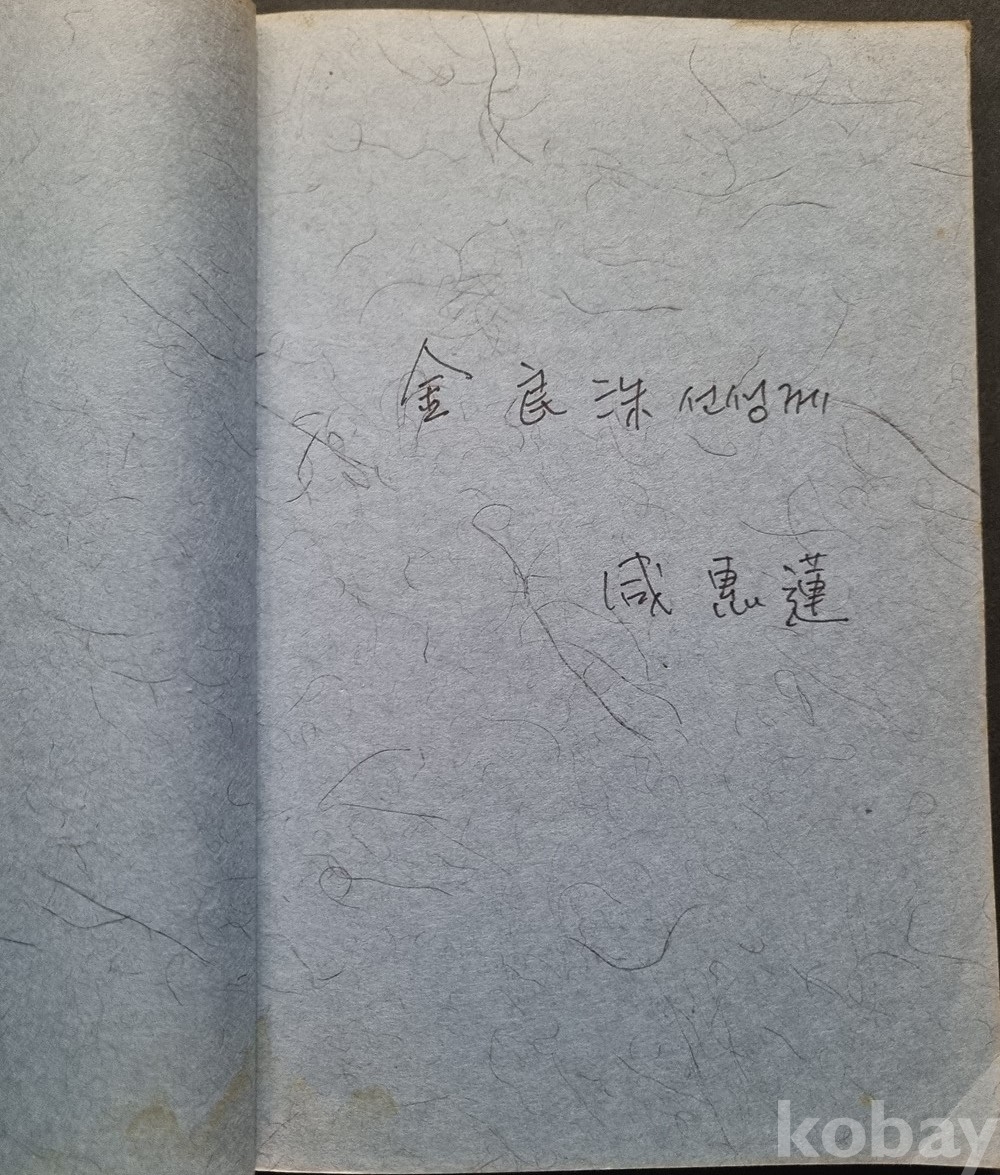 金良洙 선생께
咸惠蓮
kobay